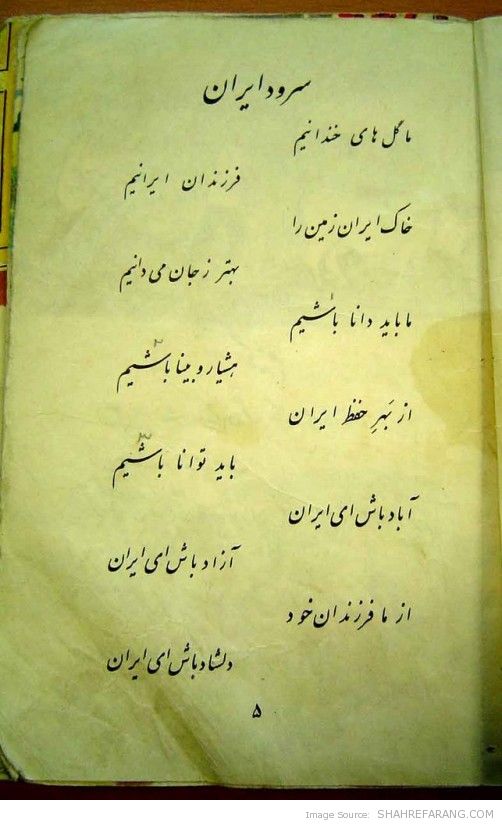 سرود ایران
ما گل های خندانیم
فرزندان ایرانیم
خاک ایران زمین را
بهتر ز جان می دانیم
ما باید دانا باشیم
۱
هشیار و بینا باشیم
۲
از بَهرِ حفظ ایران
باید توانا باشیم
۳
آباد باش ای ایران
آزاد باش ای ایران
از ما فرزندان خود
دلشاد باش ای ایران
۵
Image Source: SHAHREFARANG.COM